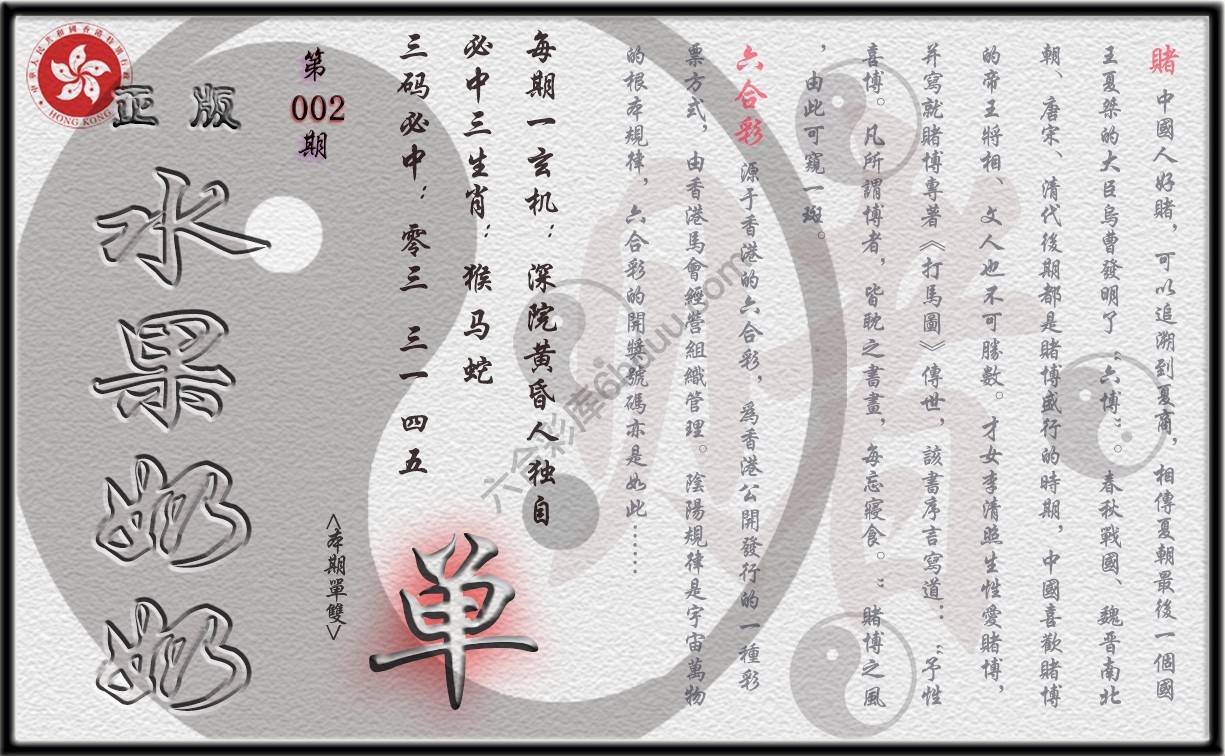 賭 中國人好賭，可以追溯到夏商，相傳夏朝最後一個國
王夏桀的大臣烏曹發明了“六博”。春秋戰國、魏晋南北
朝、唐宋、清代後期都是賭博盛行的時期，中國喜歡賭博
的帝王將相、文人也不可勝數。才女李清照生性愛賭博，
并寫就賭博專著《打馬圖》傳世，該書序言寫道：“予性
喜博。凡所謂博者，皆耽之晝晝，每忘寢食。”賭博之風
，由此可窺一斑。
六合彩 源于香港的六合彩，爲香港公開發行的一種彩
票方式，由香港馬會經營組織管理。陰陽規律是宇宙萬物
的根本規律，六合彩的開獎號碼亦是如此……
每期一玄机：深院黄昏人独自
必中三生肖：猴马蛇
三码必中：零三 三一 四五
单
<本期單雙>
第
002
期
正版
水果奶奶
中華人民共和國香港特別行政區
HONG KONG
六合彩库6hduu.com